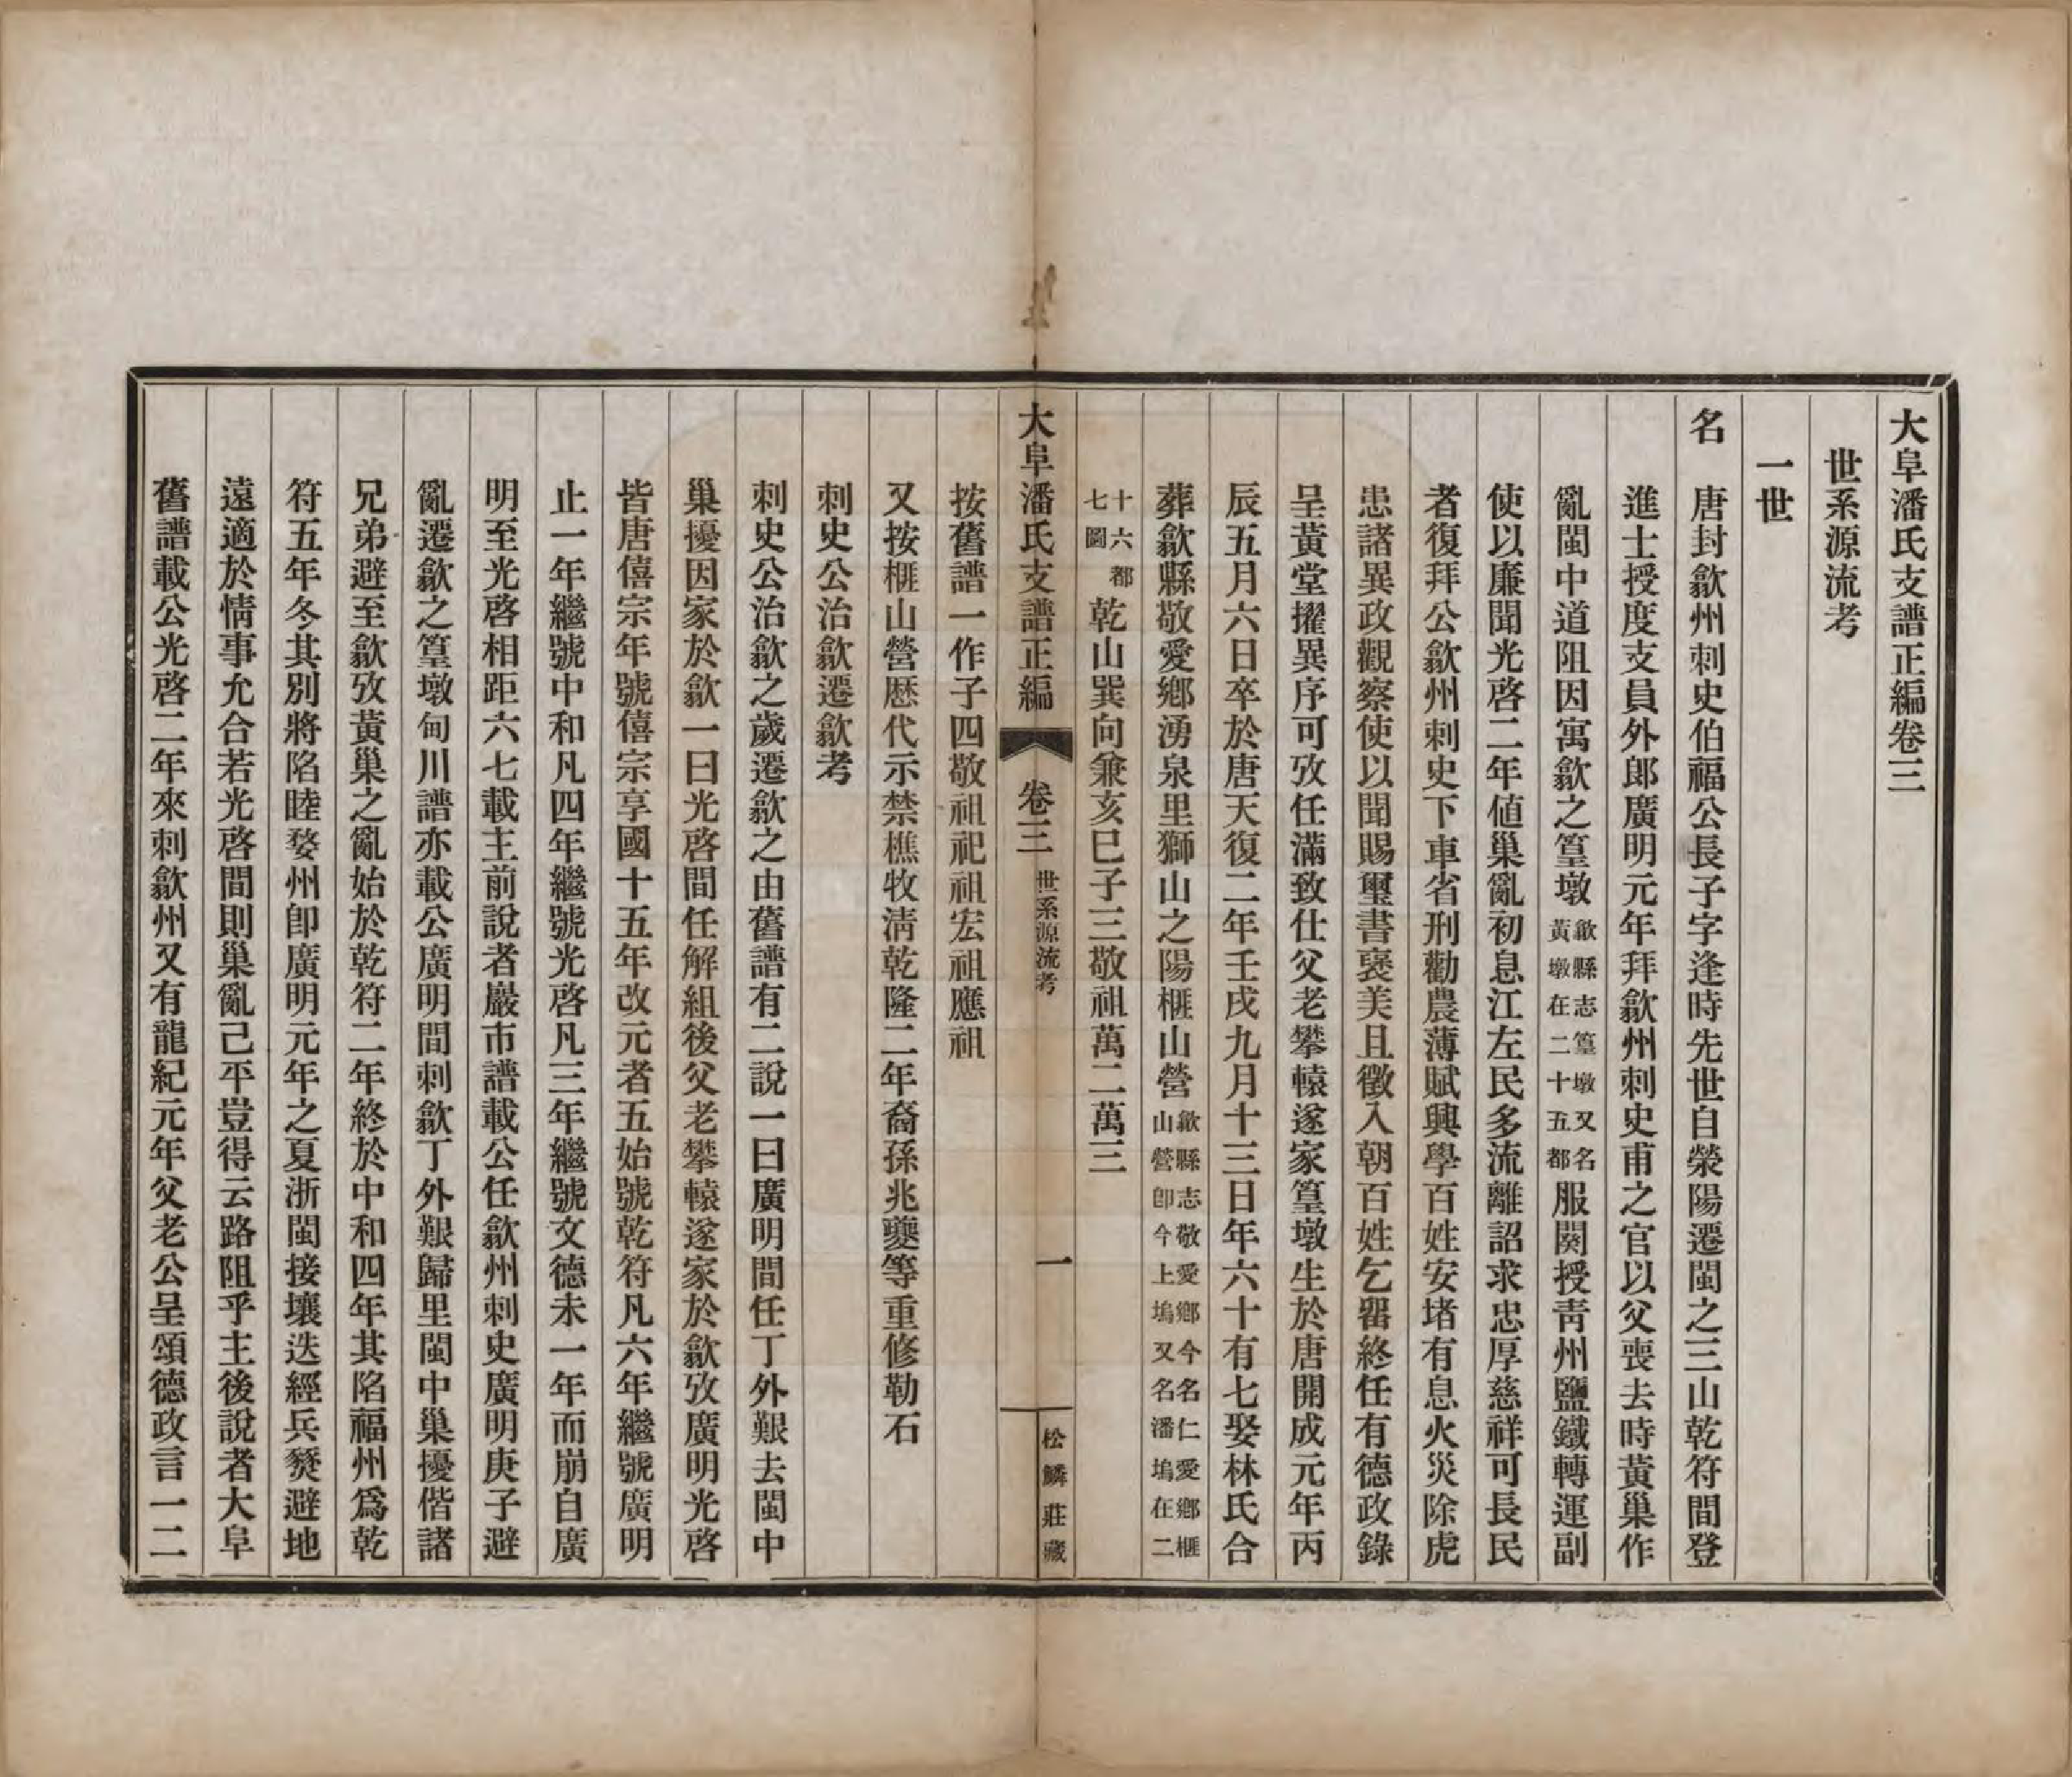 大阜潘氏支譜正編卷三
世系源流考
一世
名　唐封歙州刺史伯福公長子字逢時先世自滎陽遷閩之三山乾符間登
進士授度支員外郎廣明元年拜歙州刺史甫之官以父喪去時黃巢作
亂閩中道阻因寓歙之篁墩歙縣志篁墩又名黃墩在二十五都服闋授靑州鹽鐵轉運副
使以廉聞光啓二年値巢亂初息江左民多流離詔求忠厚慈祥可長民
者復拜公歙州刺史下車省刑勸農薄賦興學百姓安堵有息火災除虎
患諸異政觀察使以聞賜璽書襃美且徵入朝百姓乞畱終任有德政錄
呈黃堂擢異序可攷任滿致仕父老攀轅遂家篁墩生於唐開成元年丙
辰五月六日卒於唐天復二年壬戌九月十三日年六十有七娶林氏合
葬歙縣敬愛鄉湧泉里獅山之陽榧山營歙縣志敬愛鄉今名仁愛鄉榧山營卽今上塢又名潘塢在二
十六都七圖乾山巽向兼亥巳子三敬祖萬二萬三
大阜潘氏支譜正編　卷三　世系源流考　一　松鱗莊藏
按舊譜一作子四敬祖祀祖宏祖應祖
又按榧山營歷代示禁樵牧淸乾隆二年裔孫兆夔等重修勒石
刺史公治歙遷歙考
刺史公治歙之歲遷歙之由舊譜有二說一曰廣明間任丁外艱去閩中
巢擾因家於歙一曰光啓間任解組後父老攀轅遂家於歙攷廣明光啓
皆唐僖宗年號僖宗享國十五年改元者五始號乾符凡六年繼號廣明
止一年繼號中和凡四年繼號光啓凡三年繼號文德未一年而崩自廣
明至光啓相距六七載主前說者巖市譜載公任歙州刺史廣明庚子避
亂遷歙之篁墩甸川譜亦載公廣明間刺歙丁外艱歸里閩中巢擾偕諸
兄弟避至歙攷黃巢之亂始於乾符二年終於中和四年其陷福州爲乾
符五年冬其別將陷睦婺州卽廣明元年之夏浙閩接壤迭經兵燹避地
遠適於情事允合若光啓間則巢亂已平豈得云路阻乎主後說者大阜
舊譜載公光啓二年來刺歙州又有龍紀元年父老公呈頌德政言一二